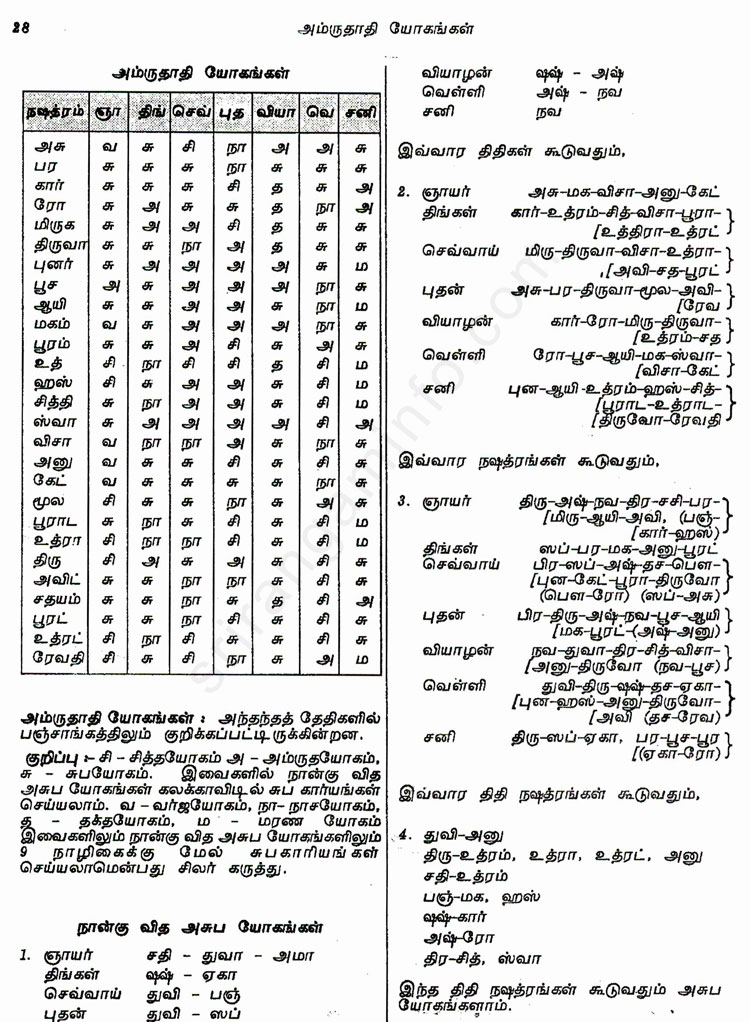 28
அம்ருதாதி யோகங்கள்
அம்ருதாதி யோகங்கள்
நஷத்ரம் ஞா திங் செவ் புத வியா வெ சனி
அசு வ சு சி நா அ அ சு
பர சு சு சு நா சு சு சு
கார் சு சு சு சி த சு அ
ரோ சு அ சு சு த நா அ
மிருக சு அ அ சி த சு சு
திருவா சு சு நா அ த சு சு
புனர் சு அ அ அ அ சு ம
பூச அ சு அ அ அ நா சு
ஆயி சு சு அ அ சு நா ம
மகம் வ சு அ அ அ நா சு
பூரம் சு சு அ சி சு அ சு
உத் சி நா சி சி த சி ம
ஹஸ் சி அ அ சு சு சி ம
சித்தி சு நா அ அ சு சி ம
ஸ்வா சு அ அ அ அ சி அ
விசா வ நா நா அ சு நா சு
அனு வ சு சு சி சு சி சு
கேட் வ சு சு சு சு நா சு
மூல சி சு சு நா சு அ சு
பூராட சு நா சு சி சு சி ம
உத்ரா சி நா நா சி சு சி ம
திரு சி அ சு அ சு சி சு
அவிட் சு சு நா நா சு சி சு
சதயம் சு சு நா சு த சி அ
பூரட் சு சு நா சி சி சு சு
உத்ரட் சி நா சி சு சு சி சு
ரேவதி சி சு சி நா சு அ ம
அம்ருதாதி யோகங்கள் : அந்தந்தத் தேதிகளில்
பஞ்சாங்கத்திலும் குறிக்கப்பட்டிருக்கின்றன.
குறிப்பு :- சி - சித்தயோகம் அ - அம்ருதயோகம்,
சு - சுபயோகம். இவைகளில் நான்கு வித
அசுப யோகங்கள் கலக்காவிடில் சுப கார்யங்கள்
செய்யலாம். வ - வர்ஜயோகம், நா- நாசயோகம்,
த - தக்தயோகம், ம - மரண யோகம்
இவைகளிலும் நான்கு வித அசுப யோகங்களிலும்
9 நாழிகைக்கு மேல் சுபகாரியங்கள்
செய்யலாமென்பது சிலர் கருத்து.
நான்கு வித அசுப யோகங்கள்
1. ஞாயர் சதி - துவா - அமா
திங்கள் ஷஷ் - ஏகா
செவ்வாய் துவி - பஞ்
புதன் துவி - ஸப்
வியாழன் ஷஷ் - அஷ்
வெள்ளி அஷ் - நவ
சனி நவ
இவ்வார திதிகள் கூடுவதும்,
2. ஞாயர் அசு-மக-விசா-அனு-கேட்
திங்கள் கார்-உத்ரம்-சித்-விசா-பூரா-
[உத்திரா-உத்ரட்
செவ்வாய் மிரு-திருவா-விசா-உத்ரா-
[அவி-சத-பூரட்
புதன் அசு-பர-திருவா-மூல-அவி-
[ரேவ
வியாழன் கார்-ரோ-மிரு-திருவா-
[உத்ரம்-சத
வெள்ளி ரோ-பூச-ஆயி-மக-ஸ்வா-
[விசா-கேட்
சனி புன-ஆயி-உத்ரம்-ஹஸ்-சித்-
[பூராட-உத்ராட-
[திருவோ-ரேவதி
இவ்வார நஷத்ரங்கள் கூடுவதும்,
3. ஞாயர் திரு-அஷ்-நவ-திர-சசி-பர-
[மிரு-ஆயி-அவி, (பஞ்-
[கார்-ஹஸ்)
திங்கள் ஸப்-பர-மக-அனு-பூரட்
செவ்வாய் பிர-ஸப்-அஷ்-தச-பௌ-
[புன-கேட்-பூரா-திருவோ
(பௌ-ரோ) (ஸப்-அசு)
புதன் பிர-திரு-அஷ்-நவ-பூச-ஆயி
[மக-பூரட்-(அஷ்-அனு)
வியாழன் நவ-துவா-திர-சித்-விசா-
[அனு-திருவோ (நவ-பூச)
வெள்ளி துவி-திரு-ஷஷ்-தச-ஏகா-
[புன-ஹஸ்-அனு-திருவோ-
[அவி (தச-ரேவ)
சனி திரு-ஸப்-ஏகா, பர-பூச-பூர
[(ஏகா-ரோ)
இவ்வார திதி நஷத்ரங்கள் கூடுவதும்,
4. துவி-அனு
திரு-உத்ரம், உத்ரா, உத்ரட், அனு
சதி-உத்ரம்
பஞ்-மக, ஹஸ்
ஷஷ்-கார்
அஷ்-ரோ
திர-சித், ஸ்வா
இந்த திதி நஷத்ரங்கள் கூடுவதும் அசுப
யோகங்களாம்.
srirangaminfo.com